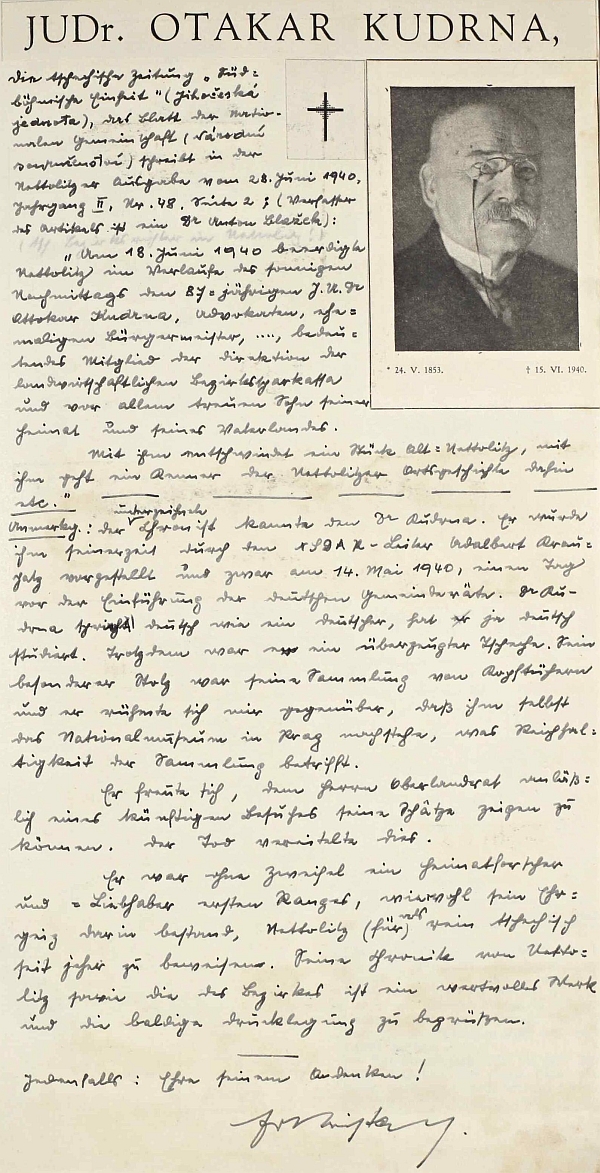 JUDr. OTAKAR KUDRNA,
Die tschechische Zeitung „Süd=
böhmische Einheit“ (Jihočeská
jednota), das Blatt der Natio-
nalen Gemeinschaft (Národní
souručenství) schreibt in der
Nettolitzer Ausgabe vom 28. Juni 1940,
Jahrgang II, Nr. 48, Seite 2; (Verfasser
des Artikels ist ein Dr Anton Blažek):
„Am 18. Juni 1940 beerdigte
Nettolitz im Verlaufe des sonnigen
Nachmittags den 87=jährigen J. U. Dr
Ottokar Kudrna, Advokaten, ehe=
maligen Bürgermeister, ...., bedeu=
tendes Mitglied der Direktion der
landwirtschaftlichen Bezirkssparkassa
und vor allem treuen Sohn seiner
Heimat und seines Vaterlandes.
* 24. V. 1853. † 15. VI. 1940.
Mit ihm entschwindet ein Stück Alt=Nettolitz, mit
ihm geht ein Kenner der Nettolitzer Ortsgeschichte dahin
etc.“
unterzeichnete
Anmerkg.: Der Chronist kannte den Dr Kudrna. Er wurde
ihm seinerzeit durch den NSDAP-Leiter Adalbert Krau=
patz vorgestellt und zwar am 14. Mai 1940, einen Tag
vor der Einführung der deutschen Gemeinderäte. Dr Ku-
drna spricht deutsch wie ein Deutscher, hat er ja deutsch
studiert. Trotzdem war er ein überzeugter Tscheche. Sein
besonderer Stolz war seine Sammlung von Kopftüchern
und er rühmte sich mir gegenüber, daß ihm selbst
das Nationalmuseum in Prag nachstehe, was Reichhal=
tigkeit der Sammlung betrifft.
Er freute sich, dem Herrn Oberlandrat anläß=
lich eines künftigen Besuches seine Schätze zeigen zu
können. Der Tod vereitelte dies.
Er war ohne Zweifel ein Heimatforscher
und =Liebhaber ersten Ranges, wiewohl sein Ehr=
geiz darin bestand, Nettolitz (für) als rein tschechisch
seit jeher zu beweisen. Seine Chronik von Netto=
litz sowie die des Bezirkes ist ein wertvolles Werk
und die baldige Drucklegung zu begrüßen.
Jedenfalls: Ehre seinem Andenken!